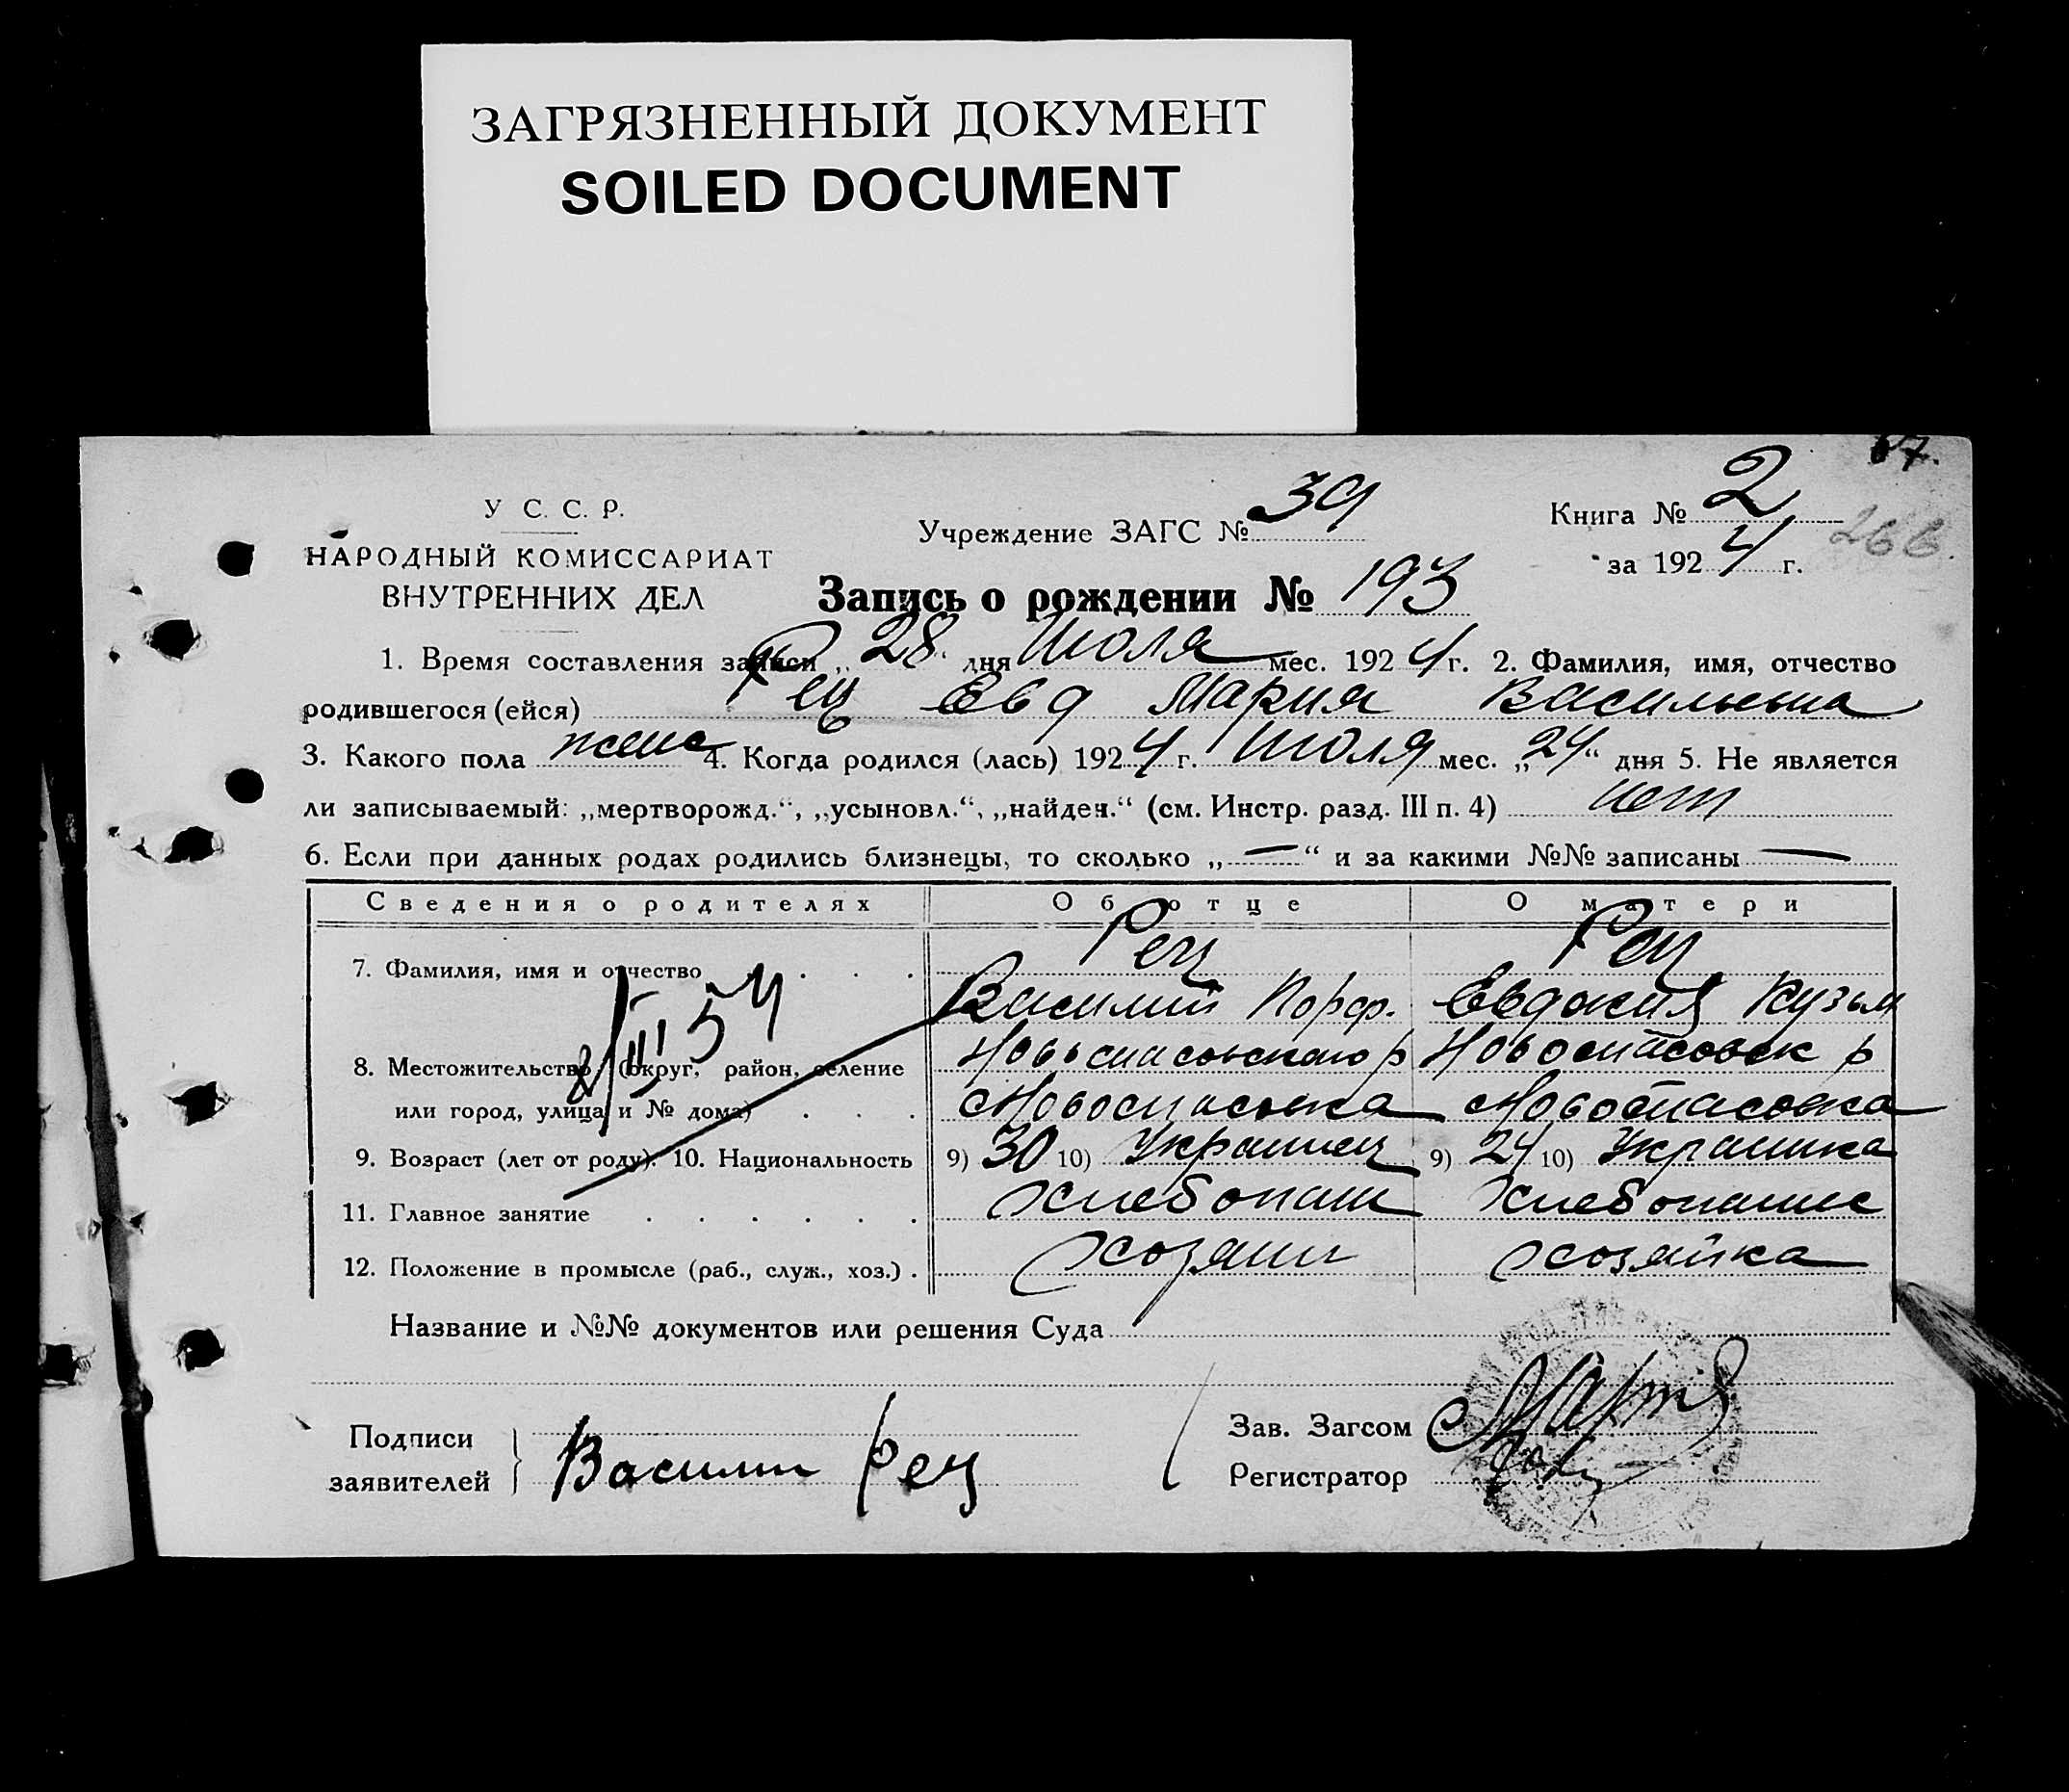 ЗАГРЯЗНЕННЫЙ ДОКУМЕНТ
SOILED DOCUMENT
У С. С. Р.
НАРОДНЫЙ КОМИССАРИАТ
ВНУТРЕННИХ ДЕЛ
Учреждение ЗАГС № 39
Книга № 2
266
за 1924 г.
Запись о рождении № 193
1. Время составления записи „28“ дня Июля мес. 1924 г. 2. Фамилия, имя, отчество
родившегося (ейся) Рец Мария Васильевна
3. Какого пола женс 4. Когда родился (лась) 1924 г. Июля мес. „24“ дня 5. Не является
ли записываемый: „мертворожд.“, „усыновл.“, „найден.“ (см. Инстр. разд. III п. 4) нет
6. Если при данных родах родились близнецы, то сколько „—“ и за какими №№ записаны —
Сведения о родителях Об отце О матери
7. Фамилия, имя и отчество . . . Рец Рец
Василий Порф. Евдокия Кузьм
8/III 54
8. Местожительство: (округ, район, селение Новоспасовского р Новоспасовск р
или город, улица и № дома) . . . Новоспасовка Новоспасовка
9. Возраст (лет от роду). 10. Национальность 9) 30 10) Украинец 9) 24 10) Украинка
11. Главное занятие . . . . . . Хлебопаш Хлебопашес
12. Положение в промысле (раб., служ., хоз.) . Хозяин Хозяйка
Название и №№ документов или решения Суда
Подписи
заявителей } Василий Рец
Зав. Загсом
Регистратор